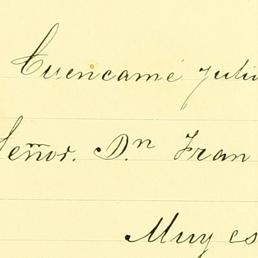 Cuencamé Juli
Señor. Dn Fran
Muy es